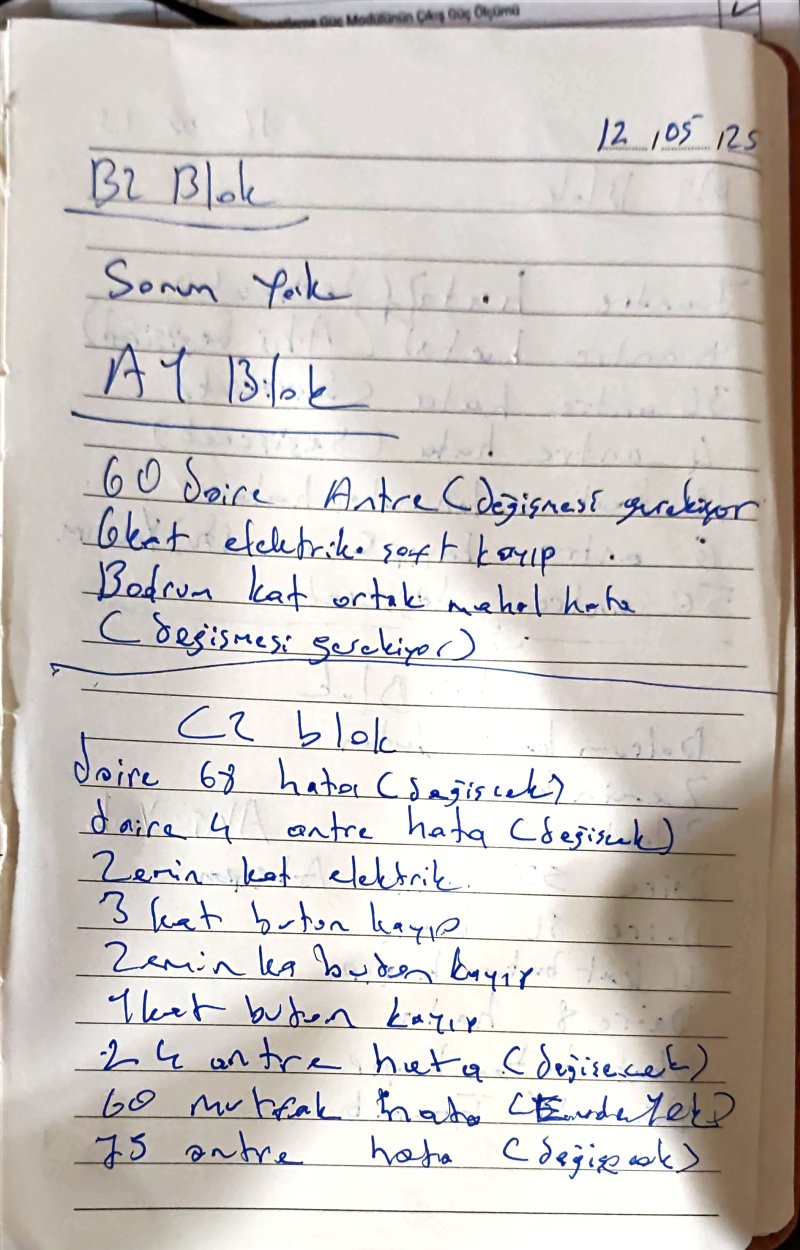 Güç Modülünün Çıkış Güç Ölçümü
12.05.25
B2 Blok
Sorun Yok
A1 Blok
60 Daire Antre (değişmesi gerekiyor
6kat elektrik şaft kayıp
Bodrum kat ortak mahal hata
(değişmesi gerekiyor)
C2 blok
daire 68 hata (değişcek)
daire 4 antre hata (değiscek)
Zemin kat elektrik
3 kat buton kayıp
Zemin ka buton kayıp
1 kat buton kayıp
24 antre hata (değişecek)
60 mutfak hata
75 antre hata (değişecek)